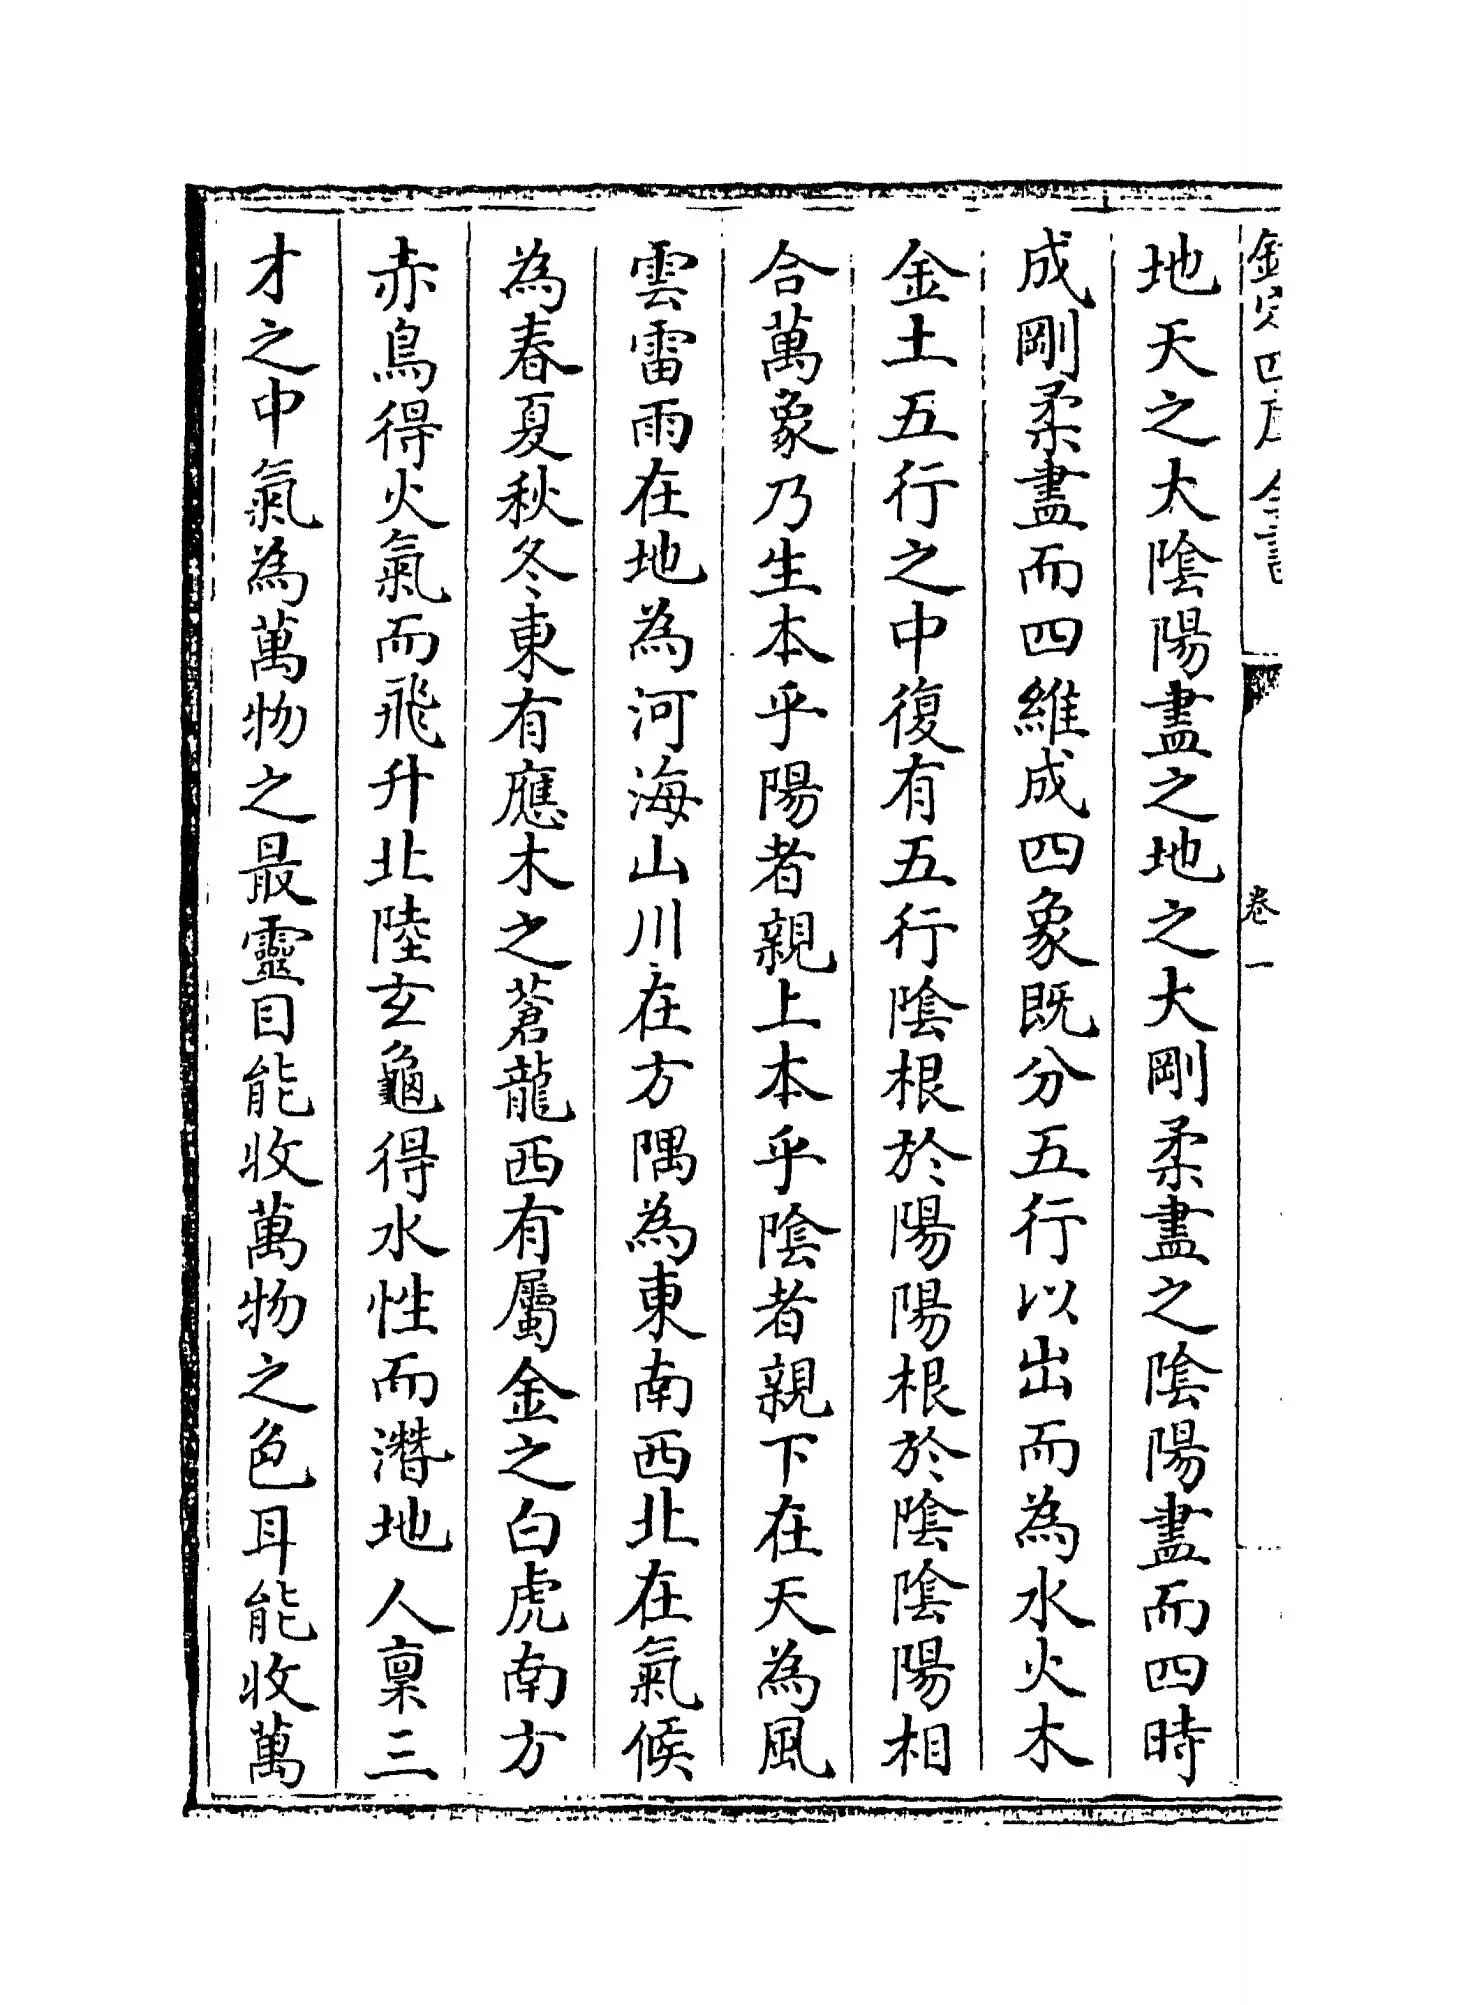 欽定四庫全書
卷一
地天之太陰陽盡之地之大剛柔盡之陰陽盡而四時
成剛柔盡而四維成四象既分五行以出而為水火木
金土五行之中復有五行陰根於陽陽根於陰陰陽相
合萬象乃生本乎陽者親上本乎陰者親下在天為風
雲雷雨在地為河海山川在方隅為東南西北在氣候
為春夏秋冬東有應木之蒼龍西有屬金之白虎南方
赤鳥得火氣而飛升北陸玄龜得水性而潛地人稟三
才之中氣為萬物之最靈目能收萬物之色耳能收萬